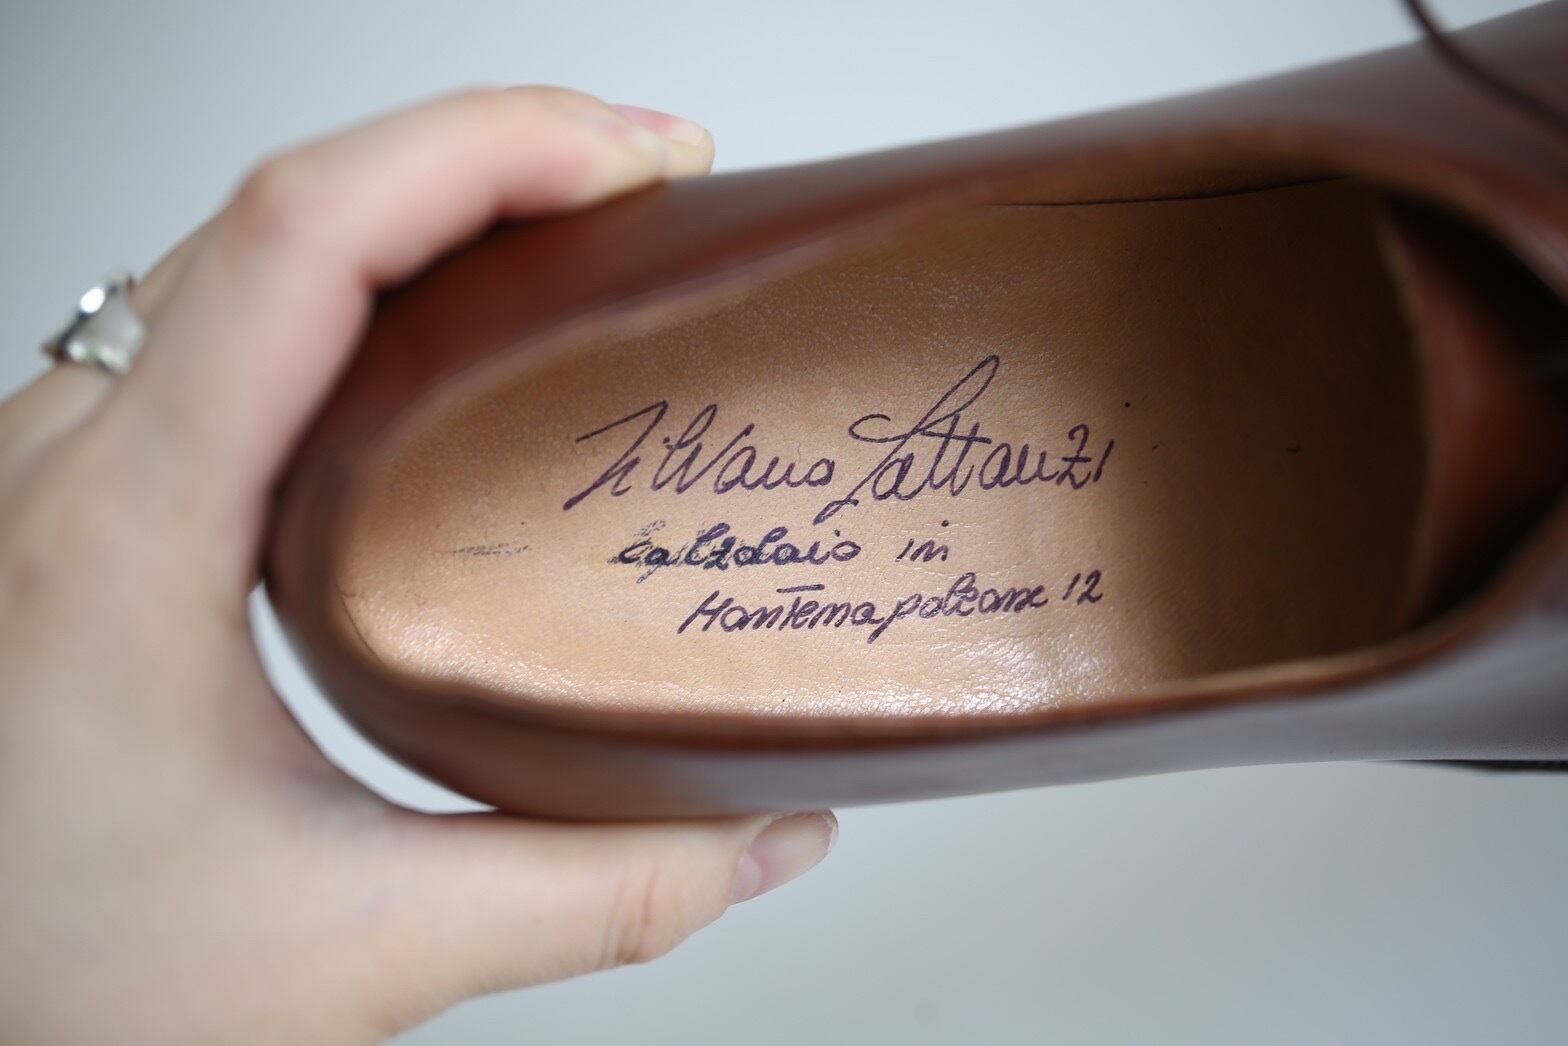 Silvano Lattanzi
Calzolaio in
Montenapoleone 12